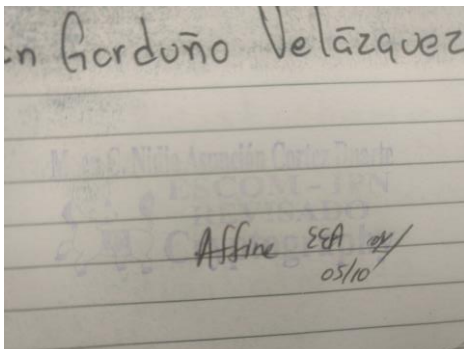 n Garduño Velázquez
M. en C. Nidia Asunción Cortez Duarte
ESCOM - IPN
REVISADO
Affine
05/10